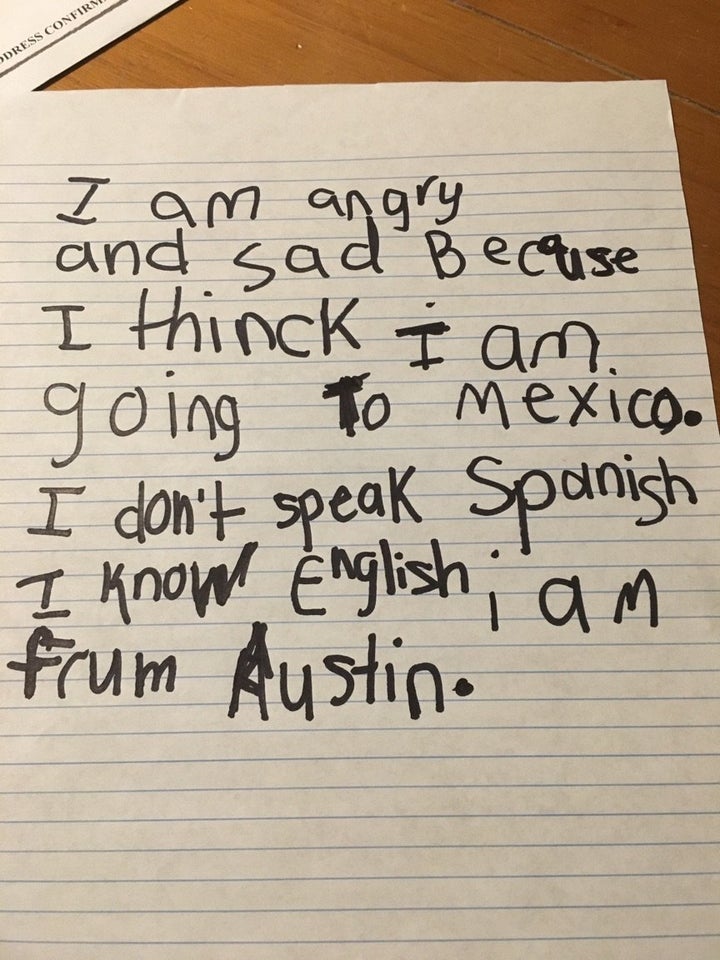 DDRESS CONFIRM
I am angry
and sad Because
I thinck i am
going To mexico.
I don't speak Spanish
I know English, i am
frum Austin.